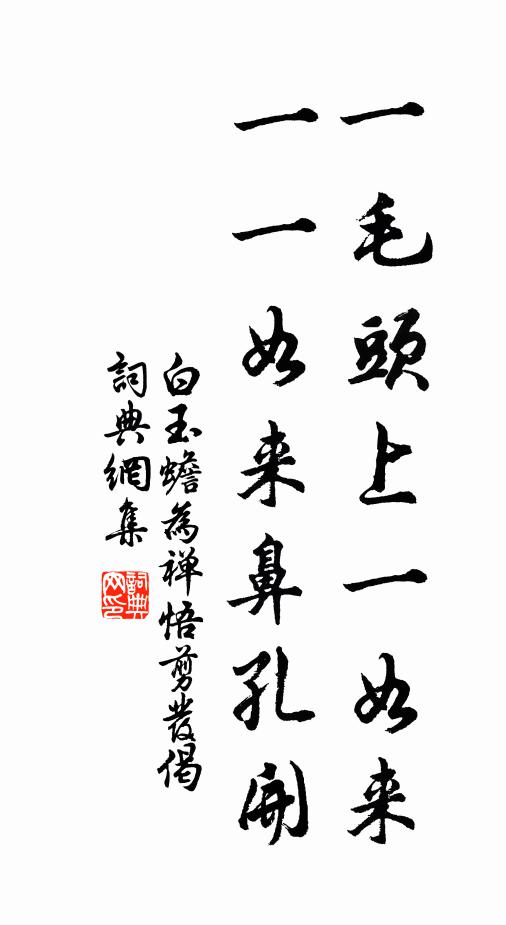 一毛頭上一如来
一一如来鼻孔開
白玉蟾為禅悟剪髮偈
詞典網集
詞典网印